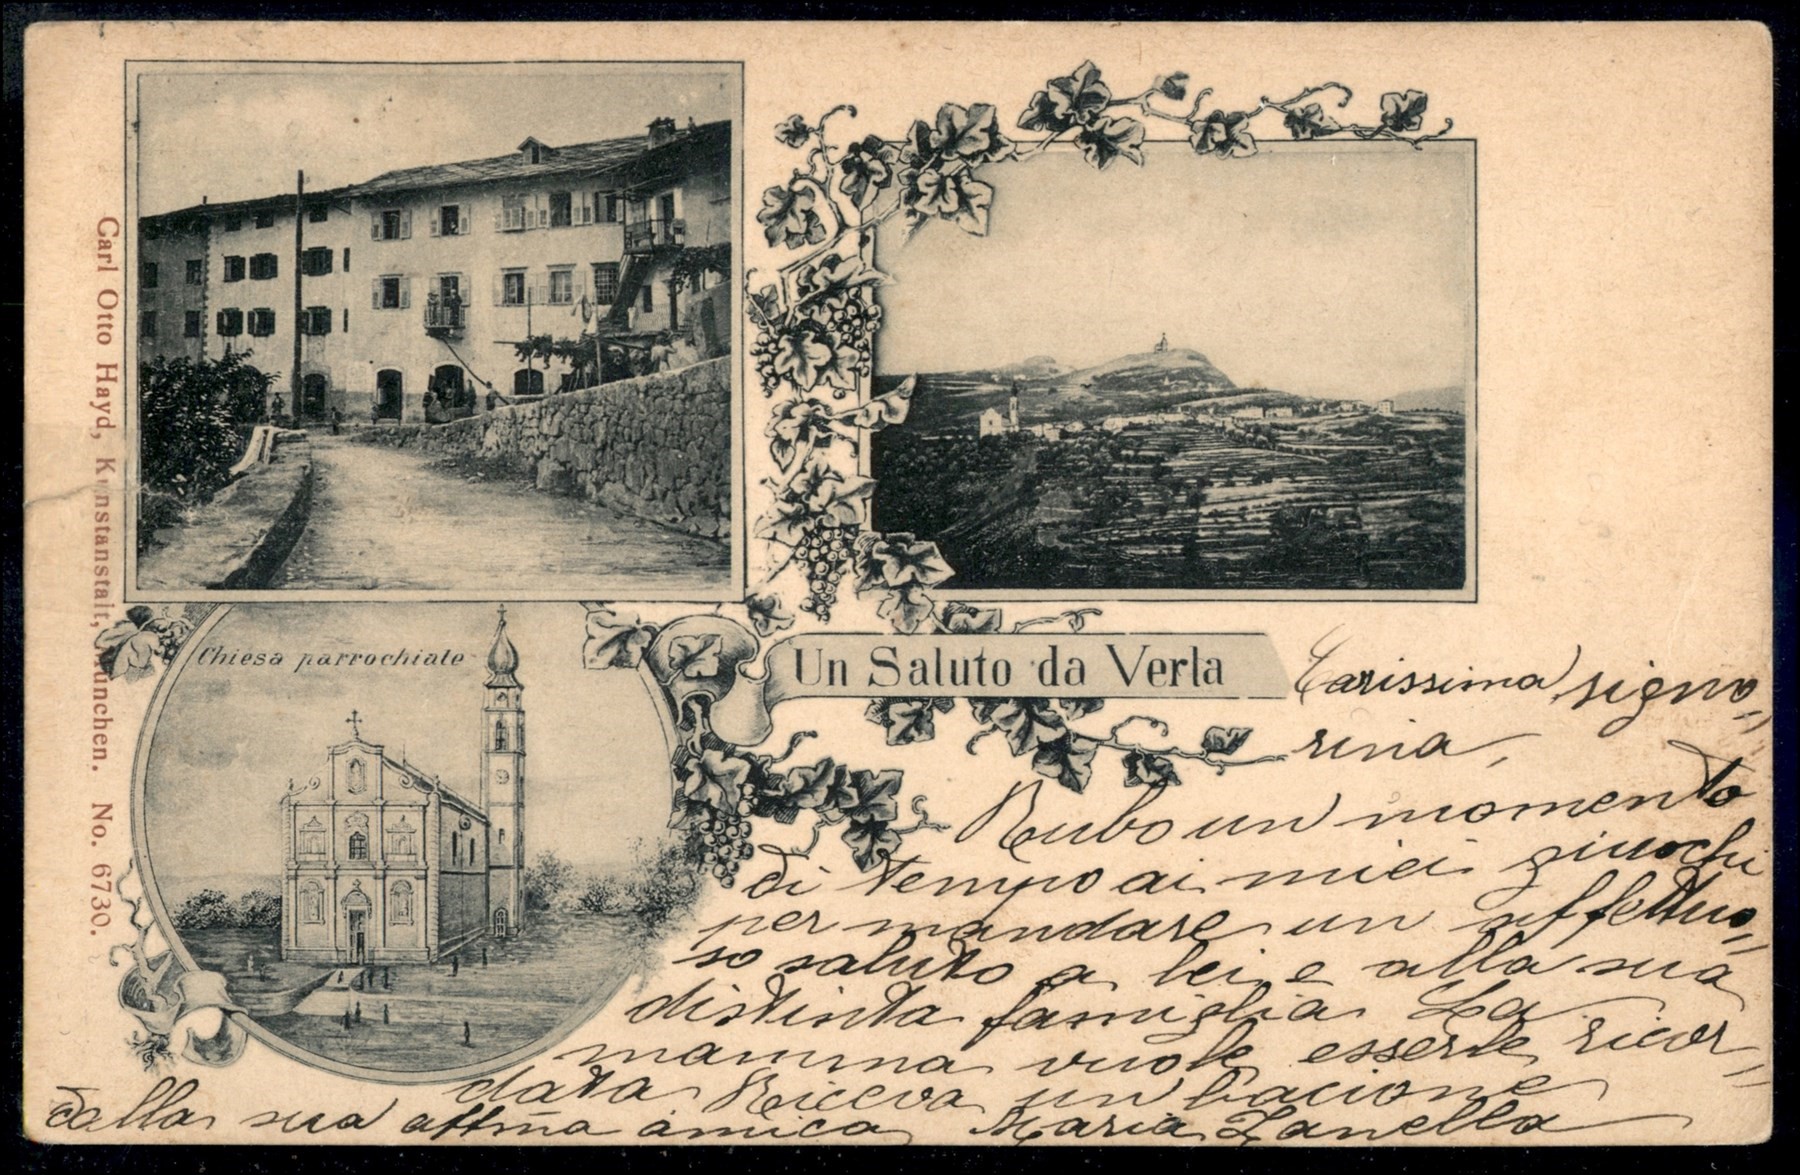 Carl Otto Hayd, Kunstanstalt, München. No. 6730.
Chiesa parrochiale
Un Saluto da Verla
Carissima signo-
rina,
Rubo un momento
di tempo ai miei giuochi
per mandare un affettuo-
so saluto a lei e alla sua
distinta famiglia La
mamma vuole esserle ricor-
data Riceva un bacione
dalla sua affma amica Maria Zanella